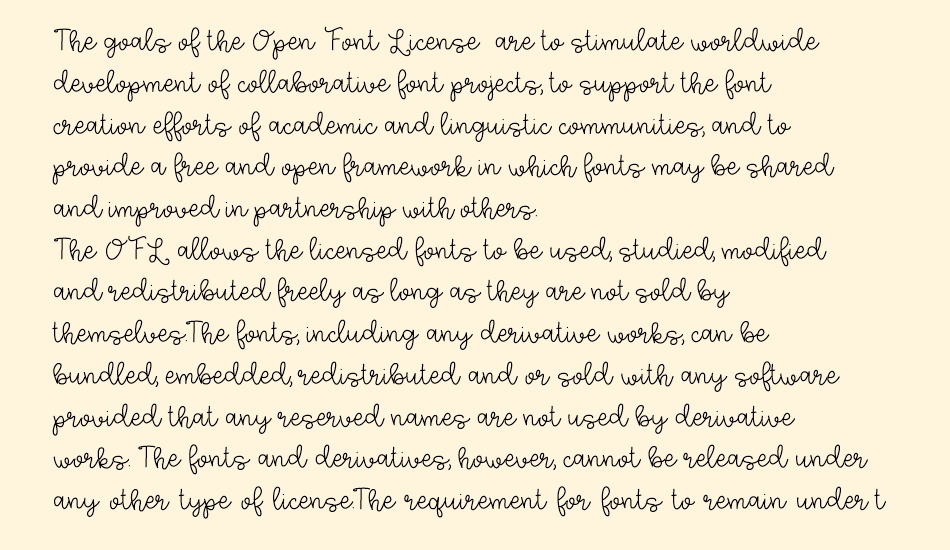 The goals of the Open Font License are to stimulate worldwide
development of collaborative font projects, to support the font
creation efforts of academic and linguistic communities, and to
provide a free and open framework in which fonts may be shared
and improved in partnership with others.
The OFL allows the licensed fonts to be used, studied, modified
and redistributed freely as long as they are not sold by
themselves.The fonts, including any derivative works, can be
bundled, embedded, redistributed and or sold with any software
provided that any reserved names are not used by derivative
works. The fonts and derivatives, however, cannot be released under
any other type of license.The requirement for fonts to remain under t